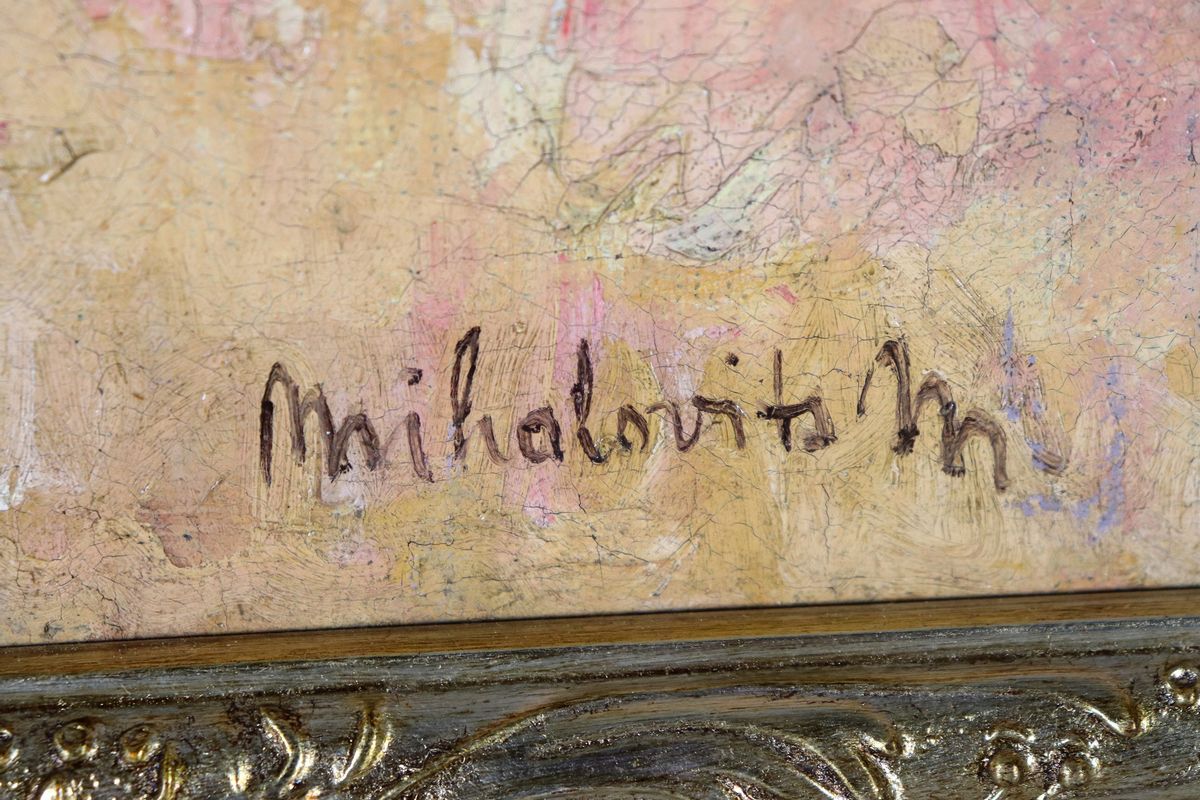 Mihalovits M